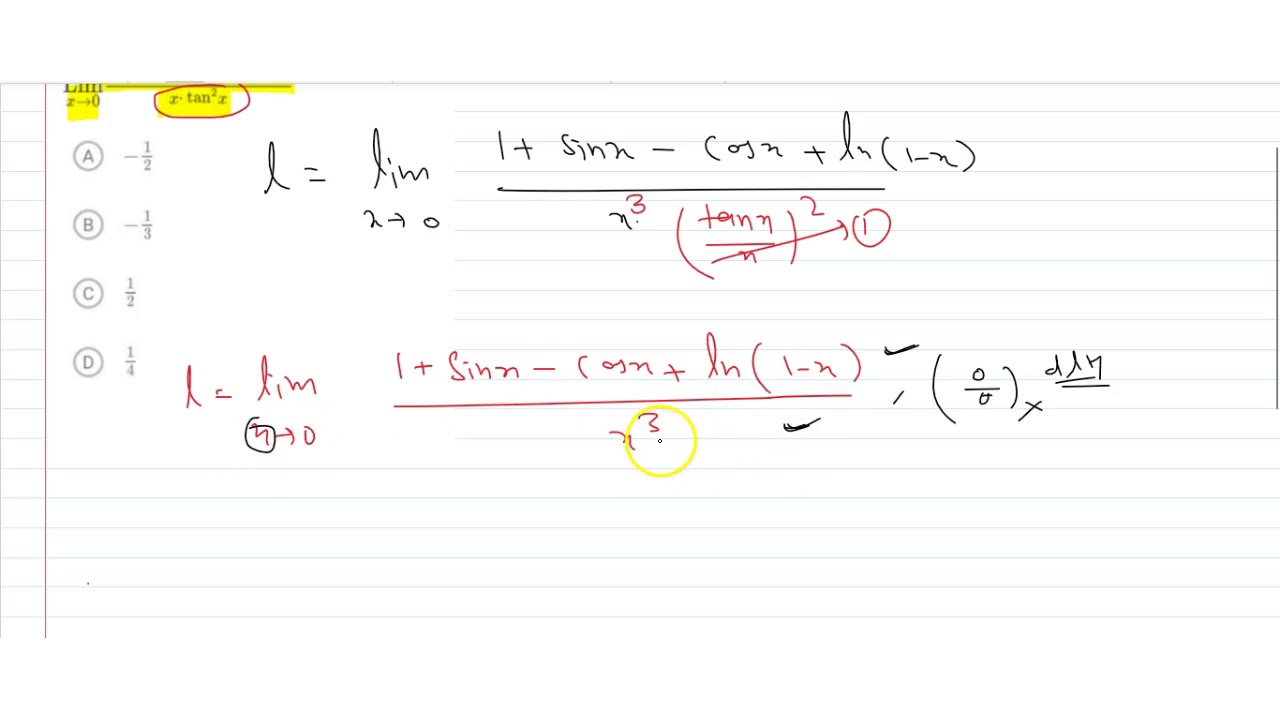 Lim
x→0
x·tan²x
A -1/2
B -1/3
C 1/2
D 1/4
l = lim x→0 (1 + sinx - cosx + ln(1-x)) / (x³ (tanx/x)²) → ①
l = lim x→0 (1 + sinx - cosx + ln(1-x)) / x³ , (0/0)